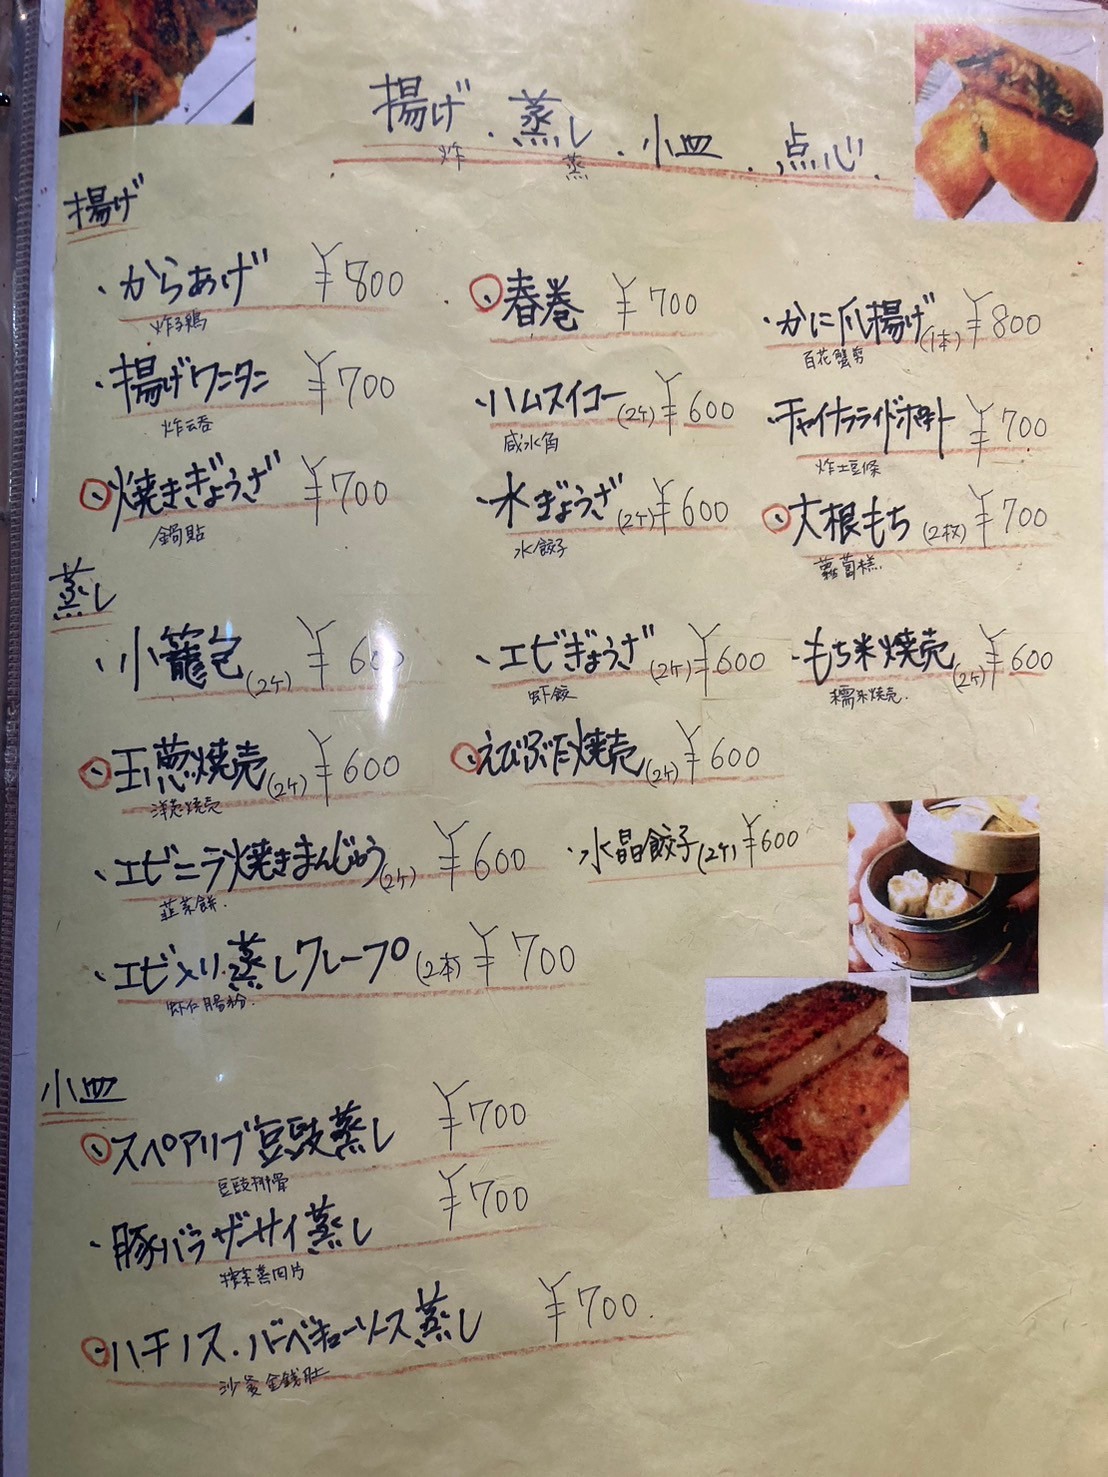 揚げ・蒸し・小皿・点心
炸 蒸
揚げ
・からあげ ¥800
炸子鶏
・春巻 ¥700
・かに爪揚げ(1本) ¥800
百花蟹
・揚げワンタン ¥700
炸云吞
・ハムスイコー(2ケ) ¥600
咸水角
・チャイナフライドポテト ¥700
炸土豆條
・焼きぎょうざ ¥700
鍋貼
・水ぎょうざ(2ケ) ¥600
水餃子
・大根もち(2枚) ¥700
蘿蔔糕
蒸し
・小籠包(2ケ) ¥600
・エビぎょうざ(2ケ) ¥600
虾餃
・もち米焼売(2ケ) ¥600
糯米焼売
・玉葱焼売(2ケ) ¥600
洋葱焼売
・えびぶた焼売(2ケ) ¥600
・エビニラ焼きまんじゅう(2ケ) ¥600
韮菜餅
・水晶餃子(2ケ) ¥600
・エビ入り蒸しクレープ(2本) ¥700
虾仁腸粉
小皿
・スペアリブ豆豉蒸し ¥700
豆豉排骨
・豚バラザーサイ蒸し ¥700
榨菜蒸肉片
・ハチノス・バーベキューソース蒸し ¥700
沙爹金銭肚